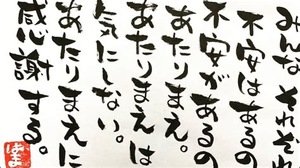 みんなそれぞれ
不安はあるの
不安があるの
あたりまえ。
あたりまえは
気にしない。
あたりまえに
感謝する。